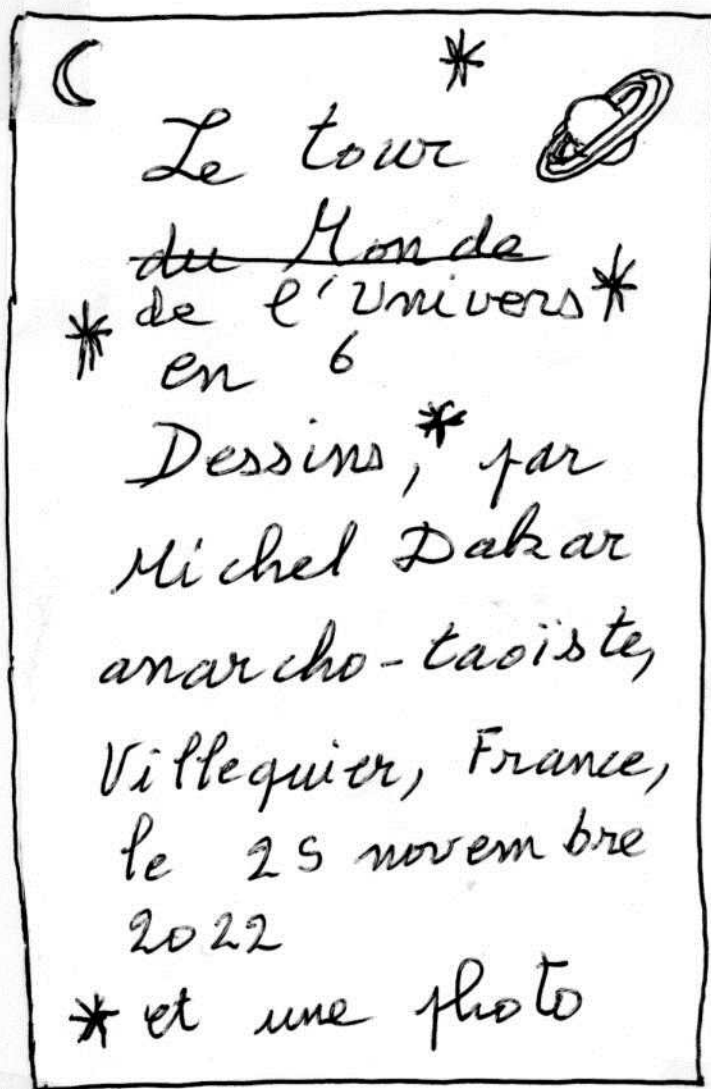 Le tour
du Monde
de l'Univers
en 6
Dessins,* par
Michel Dakar
anarcho-taoïste,
Villequier, France,
le 25 novembre
2022
* et une photo